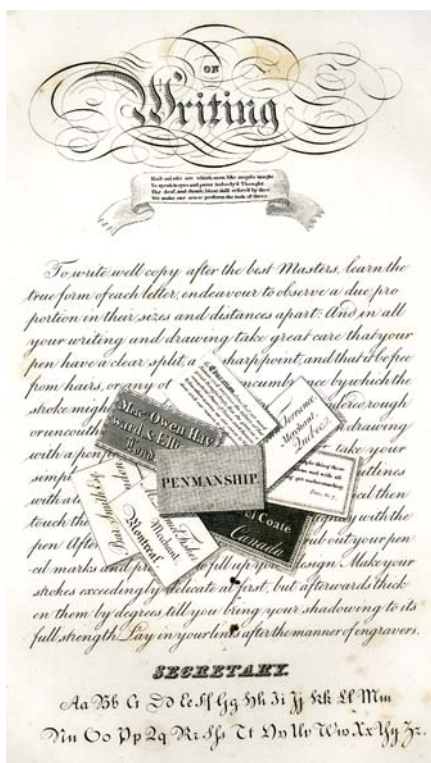 ON
Writing
Hail mistic art which men like angels taught
To speak to eyes and paint imbody'd Thought
The deaf, and dumb, blest skill reliev'd by thee
We make one sense perform the task of three.
To write well copy after the best Masters, learn the
true form of each letter, endeavour to observe a due pro
portion in their sizes and distances apart: And in all
your writing and drawing take great care that your
pen have a clear split, a sharp point, and that it be free
from hairs, or any ot ncumbrance by which the
stroke migh dered rough
or uncouth drawing
with a pen take your
simpl utlines
with a cil then
touch the with the
pen After ub out your pen
cil marks and pr to fill up you design Make your
strokes exceedingly delicate at first, but afterwards thick
en them by degrees till you bring your shadowing to its
full strength Lay in your lines after the manner of engravers.
Mas. Owen
ward & Ell
Bond
Torrance
Merchant,
Quebec
get understanding
PENMANSHIP.
Fisher
Merchant,
Montreal.
el Coate
Canada.
SECRETARY.
Aa Bb Cc Dd Ee Ff Gg Hh Ii Jj Kk Ll Mm
Nn Oo Pp Qq Rr Sſs Tt Uu Vv Ww Xx Yy Zz.